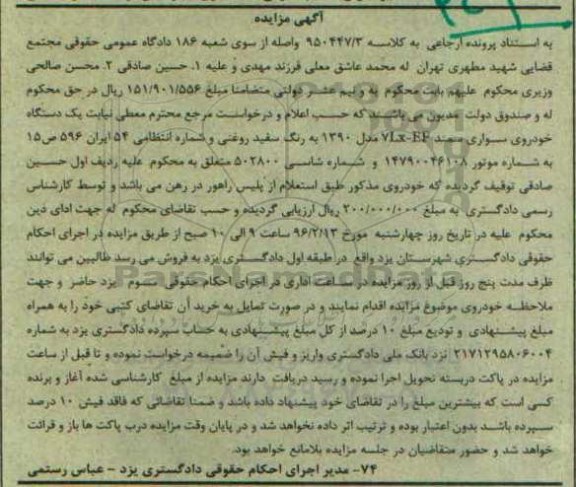 آگهی مزایده
به استناد پرونده ارجاعی به کلاسه ۹۵۰۴۴۷/۳ واصله از سوی شعبه ۱۸۶ دادگاه عمومی حقوقی مجتمع
قضایی شهید مطهری تهران له محمد عاشق معلی فرزند مهدی و علیه ۱. حسین صادقی ۲. محسن صالحی
وزیری محکوم علیهم بابت محکوم به و نیم عشر دولتی متضامنا مبلغ ۱۵۱/۹۰۱/۵۵۶ ریال در حق محکوم
له و صندوق دولت مدیون می باشند که حسب اعلام و درخواست مرجع محترم معطی نیابت یک دستگاه
خودروی سواری سمند ۷Lx-EF مدل ۱۳۹۰ به رنگ سفید روغنی و شماره انتظامی ۵۴ ایران ۵۹۶ ص۱۵
به شماره موتور ۱۴۷۹۰۰۴۶۱۰۸ و شماره شاسی ۵۰۲۸۰۰ متعلق به محکوم علیه ردیف اول حسین
صادقی توقیف گردیده که خودروی مذکور طبق استعلام از پلیس راهور در رهن می باشد و توسط کارشناس
رسمی دادگستری به مبلغ ۲۰۰/۰۰۰/۰۰۰ ریال ارزیابی گردیده و حسب تقاضای محکوم له جهت ادای دین
محکوم علیه در تاریخ روز چهارشنبه مورخ ۹۶/۲/۱۳ ساعت ۹ الی ۱۰ صبح از طریق مزایده در اجرای احکام
حقوقی دادگستری شهرستان یزد واقع در طبقه اول دادگستری یزد به فروش می رسد طالبین می توانند
ظرف مدت پنج روز قبل از روز مزایده در ساعت اداری در اجرای احکام حقوقی سوم یزد حاضر و جهت
ملاحظه خودروی موضوع مزایده اقدام نمایند و در صورت تمایل به خرید آن تقاضای کتبی خود را به همراه
مبلغ پیشنهادی و تودیع مبلغ ۱۰ درصد از کل مبلغ پیشنهادی به حساب سپرده دادگستری یزد به شماره
۲۱۷۱۲۹۵۸۰۶۰۰۴ نزد بانک ملی دادگستری واریز و فیش آن را ضمیمه درخواست نموده و تا قبل از ساعت
مزایده در پاکت دربسته تحویل اجرا نموده و رسید دریافت دارند مزایده از مبلغ کارشناسی شده آغاز و برنده
کسی است که بیشترین مبلغ را در تقاضای خود پیشنهاد داده باشد و ضمنا تقاضائی که فاقد فیش ۱۰ درصد
سپرده باشد بدون اعتبار بوده و ترتیب اثر داده نخواهد شد و در پایان وقت مزایده درب پاکت ها باز و قرائت
خواهد شد و حضور متقاضیان در جلسه مزایده بلامانع خواهد بود.
۷۴- مدیر اجرای احکام حقوقی دادگستری یزد - عباس رستمی
ParsNamadData